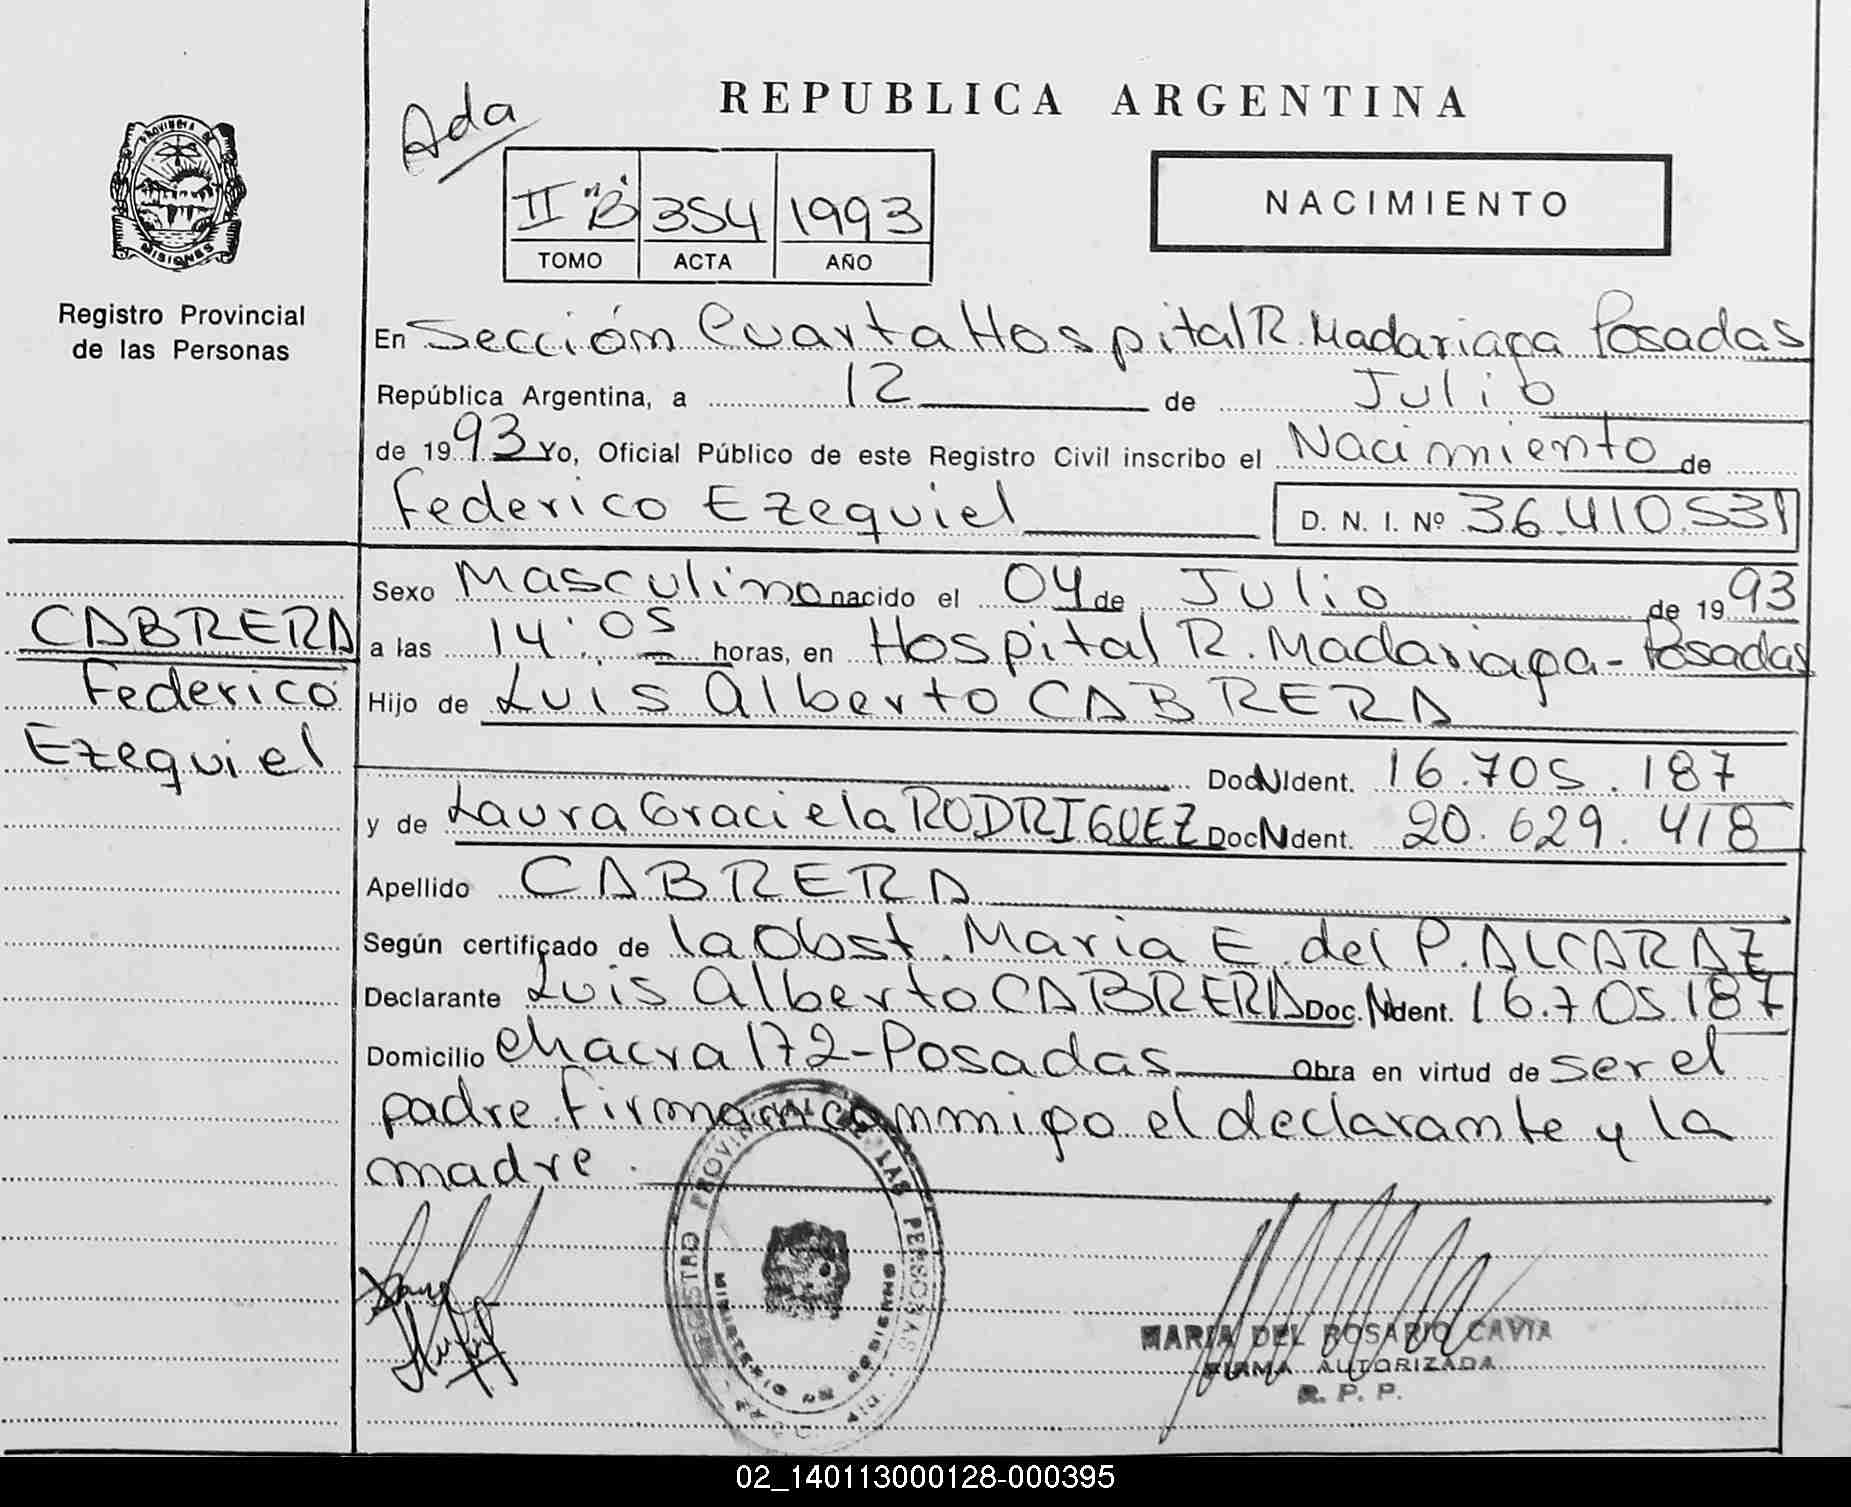 PROVINCIA DE
MISIONES
Registro Provincial
de las Personas
Ada
REPUBLICA ARGENTINA
II "B" 354 1993
TOMO ACTA AÑO
NACIMIENTO
En Sección Cuarta Hospital R. Madariaga Posadas
República Argentina, a 12 de Julio
de 1993 Yo, Oficial Público de este Registro Civil inscribo el Nacimiento de
Federico Ezequiel D. N. I. Nº 36.410.531
Sexo Masculino nacido el 04 de Julio de 1993
a las 14:05 horas, en Hospital R. Madariaga - Posadas
Hijo de Luis Alberto CABRERA
Doc N Ident. 16.705.187
y de Laura Graciela RODRIGUEZ Doc N dent. 20.629.418
Apellido CABRERA
Según certificado de la Obst. Maria E. del P. ALCARAZ
Declarante Luis Alberto CABRERA Doc. N dent. 16.705.187
Domicilio chacra 172-Posadas Obra en virtud de ser el
padre. Firman conmigo el declarante y la
madre.
CABRERA
Federico
Ezequiel
REGISTRO PROVINCIAL DE LAS PERSONAS
MINISTERIO DE GOBIERNO
MARIA DEL ROSARIO CAVIA
FIRMA AUTORIZADA
R. P. P.
02_140113000128-000395